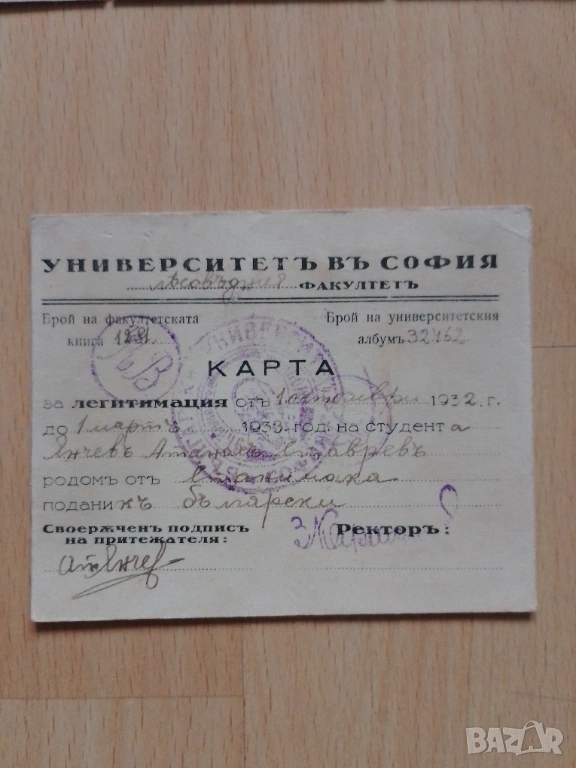 УНИВЕРСИТЕТЪ ВЪ СОФИЯ
ФАКУЛТЕТЪ
Брой на факултетската
книга 1281.
Брой на университетския
албумъ 32452
КАРТА
за легитимация отъ 1 октомври 1932 г.
до 1 мартъ 1933 год. на студента
Янчевъ Атанасъ Ставревъ
родомъ отъ Станимака
поданикъ български
Своерѫченъ подпис
на притежателя:
Ректоръ:
Ат. Янчев
BAZAR